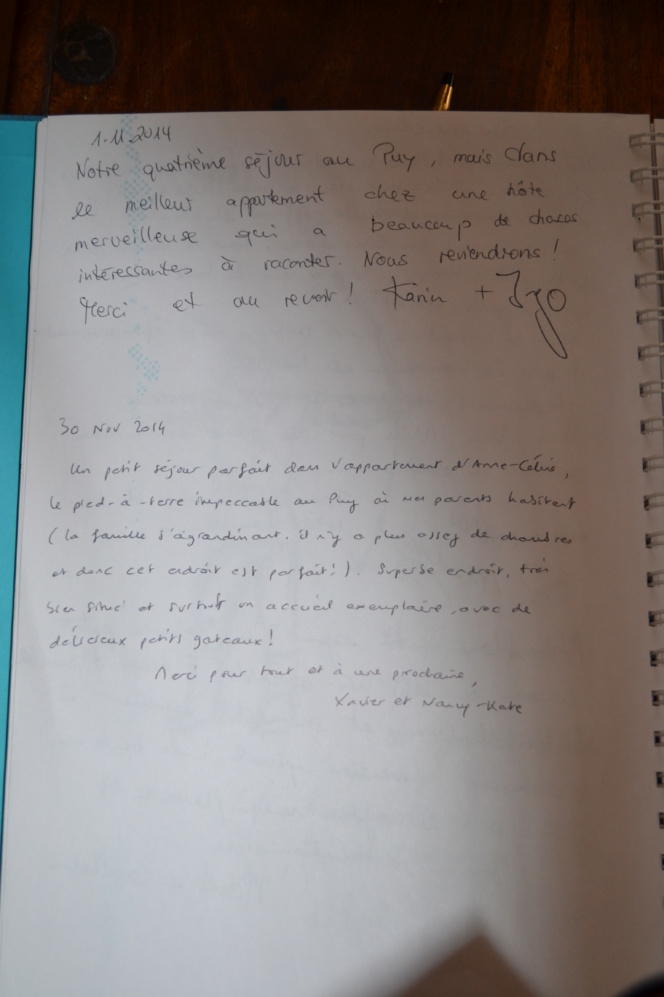 1-11-2014
Notre quatrième séjour au Puy, mais dans
le meilleur appartement chez une hôte
merveilleuse qui a beaucoup de choses
intéressantes à raconter. Nous reviendrons!
Merci et au revoir! Karin +
30 Nov 2014
Un petit séjour parfait dans l'appartement d'Anne-Céline,
le pied-à-terre impeccable au Puy où mes parents habitent
(la famille s'agrandissant, il n'y a plus assez de chambres
et donc cet endroit est parfait!). Superbe endroit, très
bien situé et surtout un accueil exemplaire, avec de
délicieux petits gateaux!
Merci pour tout et à une prochaine,
Xavier et Nancy-Kate